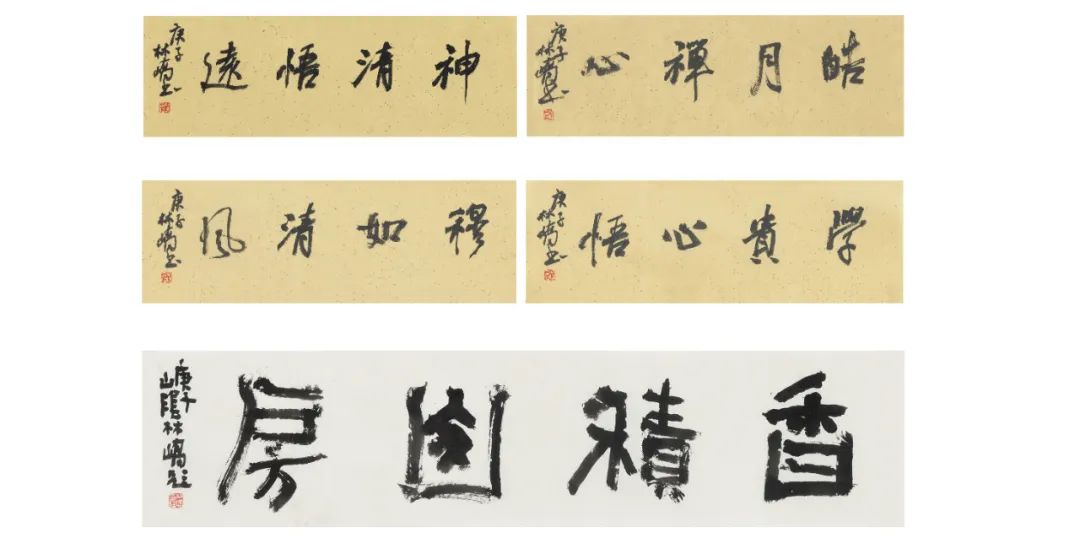 神清悟遠
庚子
林嶠书
皓月禪心
庚子
林嶠书
穆如清風
庚子
林嶠书
學貴心悟
庚子
林嶠书
香積 房
庚子
山陰林嶠題